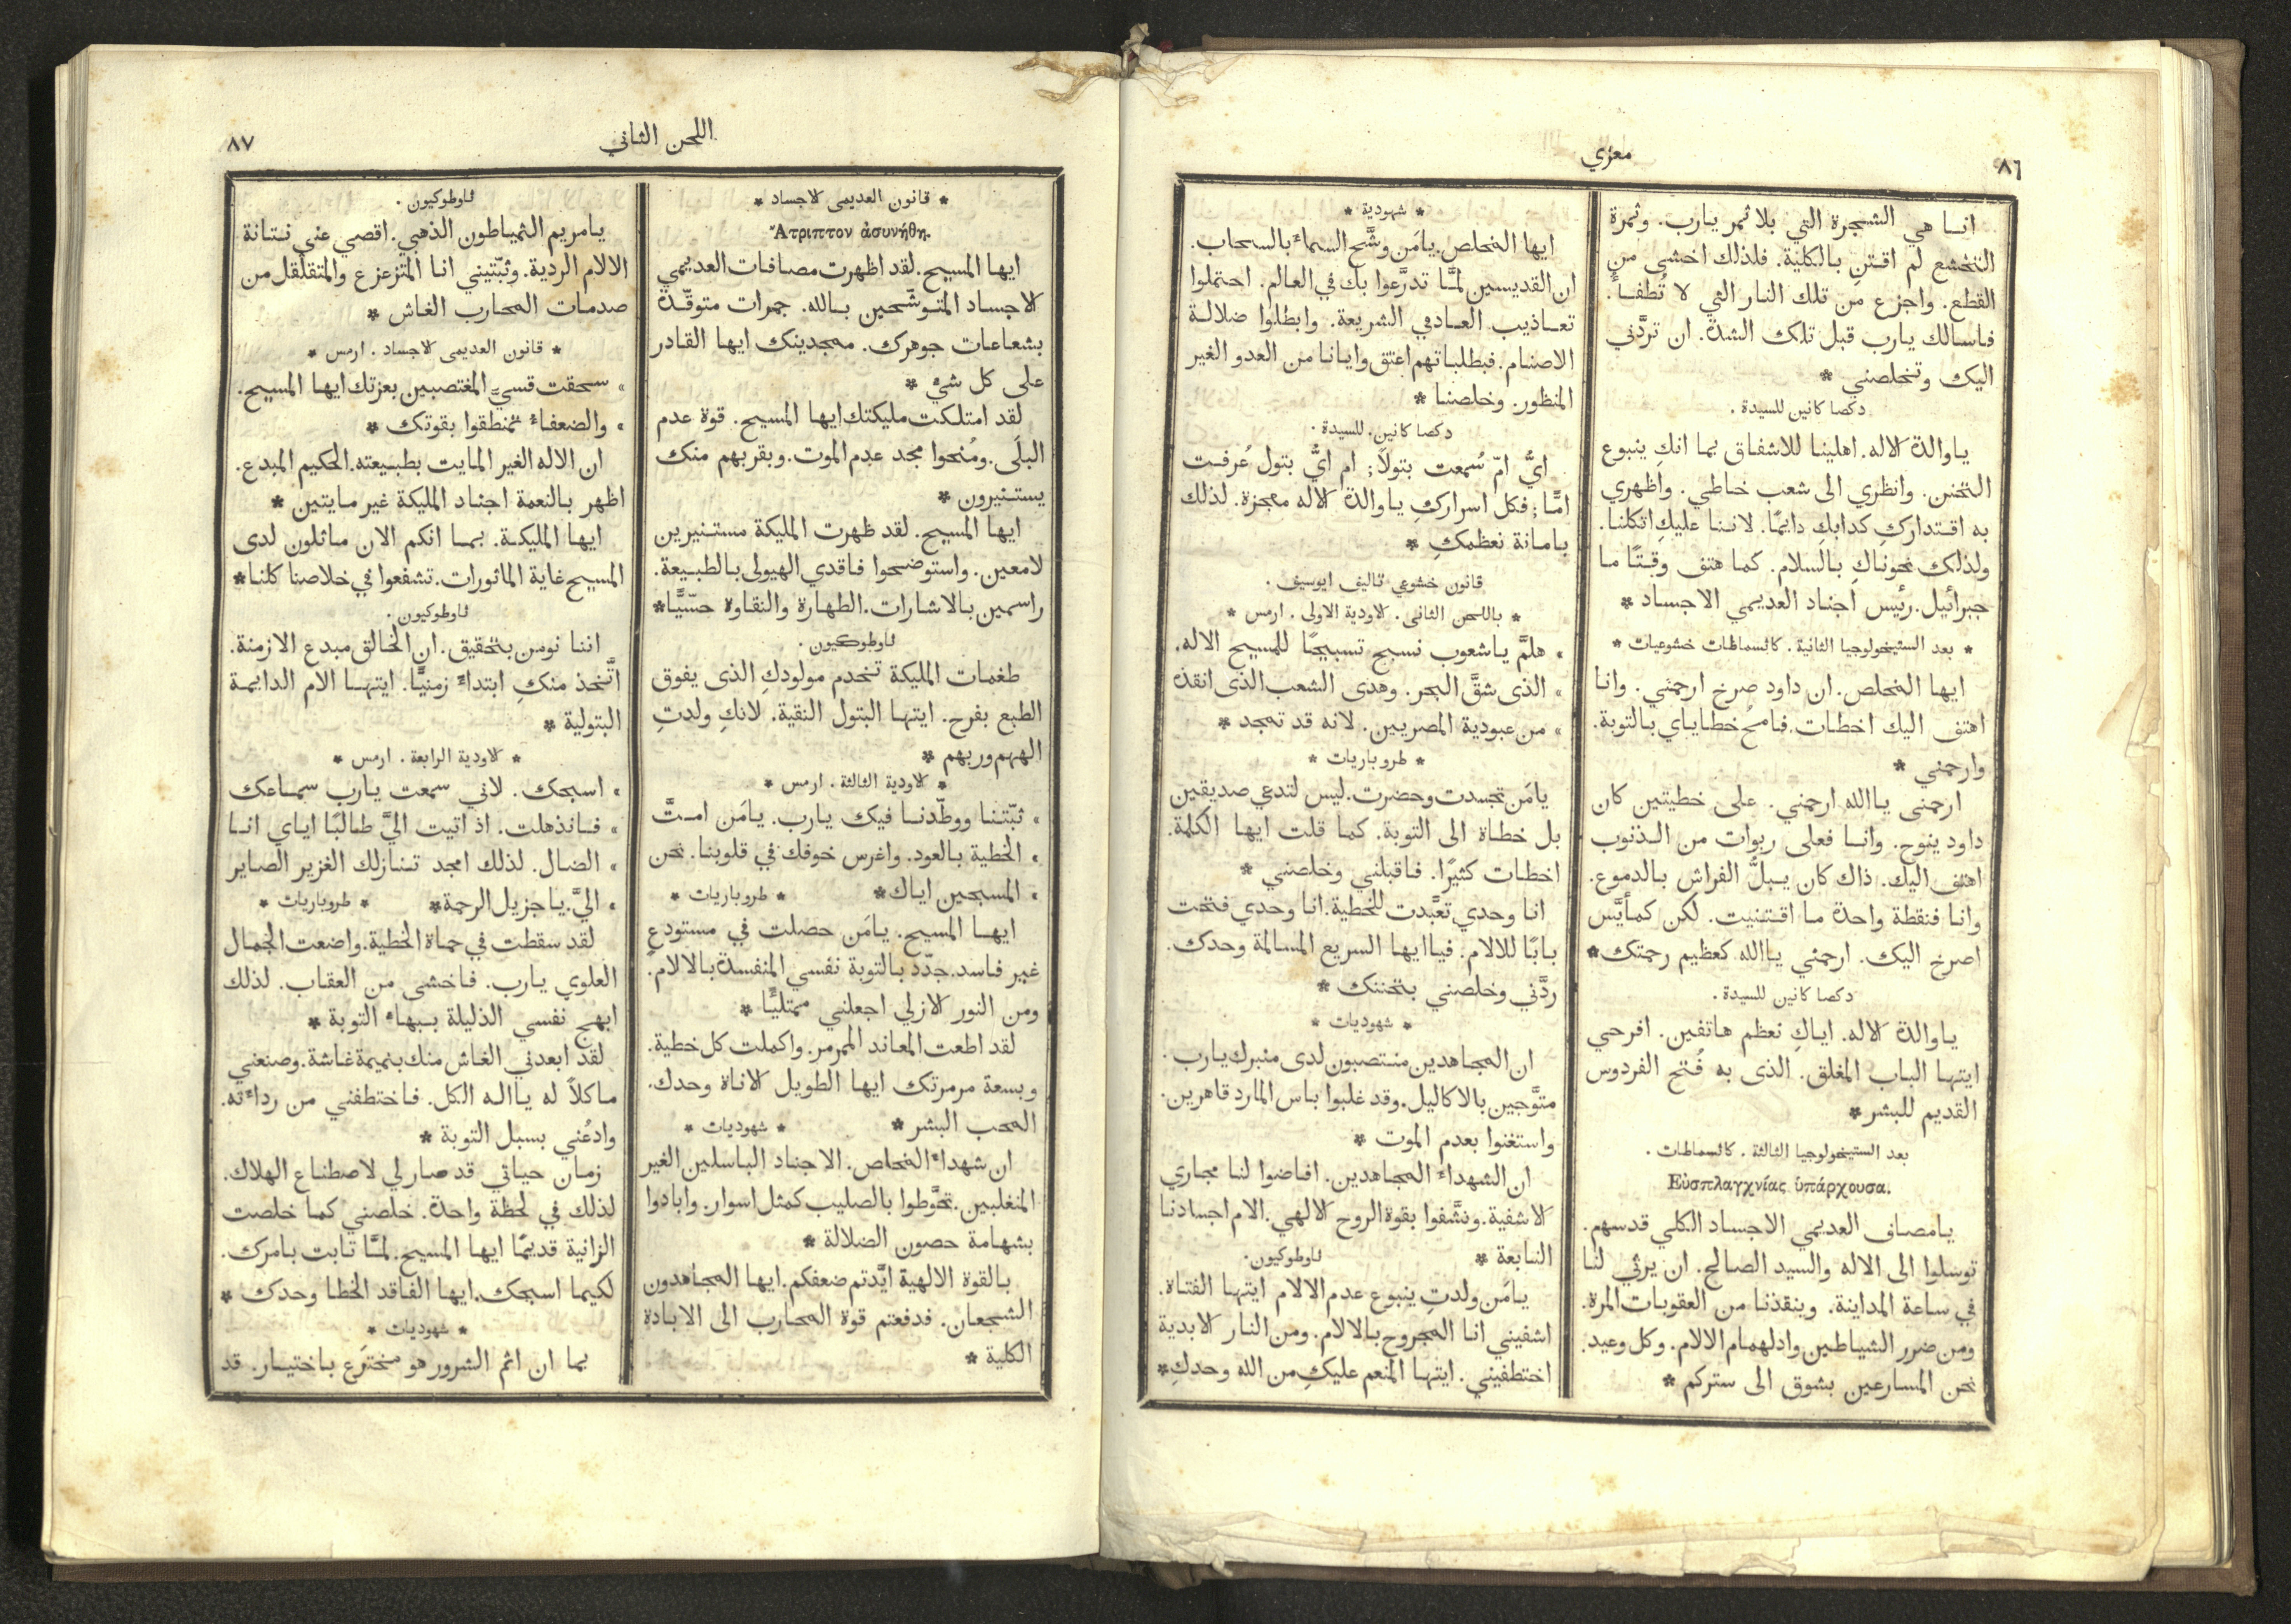 ٨٦
معزي
انا هي الشجرة التي بلا ثمر يارب. وثمرة
التخشع لم اقتنِ بالكلية. فلذلك اخشى من
القطع. واجزع من تلك النار التي لا تُطفأ.
فاسالك يارب قبل تلك الشدة. ان تردَّني
اليك وتخلصني *
دكصا كانين للسيدة.
ياوالدة الاله. اهلينا للاشفاق بما انكِ ينبوع
التحنن. وانظري الى شعب خاطي. واظهري
به اقتداركِ كدابكِ دايمًا. لاننا عليكِ اتكلنا.
ولذلك نحوناكِ بالسلام. كما هتف وقتًا ما
جبرائيل. رئيس اجناد العديمي الاجساد *
* بعد الستيخولوجيا الثانية. كاثسماطات خشوعيات *
ايها المخلص. ان داود صرخ ارحمني. وانا
اهتف اليك اخطات. فامحُ خطاياي بالتوبة.
وارحمني *
ارحمنى ياالله ارحمني. على خطيتين كان
داود ينوح. وانا فعلى ربوات من الذنوب
اهتف اليك. ذاك كان يبلُّ الفراش بالدموع.
وانا فنقطة واحدة ما اقتنيت. لكن كمأيَّس
اصرخ اليك. ارحمني ياالله كعظيم رحمتك*
دكصا كانين للسيدة.
ياوالدة الاله. اياكِ نعظم هاتفين. افرحي
ايتها الباب المغلق. الذى به فُتح الفردوس
القديم للبشر*
بعد الستيخولوجيا الثالثة. كاثسماطات.
Εὐσπλαγχνίας ὑπάρχουσα.
يامصاف العديمي الاجساد الكلي قدسهم.
توسلوا الى الاله والسيد الصالح. ان يرثي لنا
في ساعة المداينة. وينقذنا من العقوبات المرة.
ومن ضرر الشياطين وادلهمام الالام. وكل وعيد.
نحن المسارعين بشوق الى ستركم *
* شهودية *
ايها المخلص. يامَن وشَّح السماء بالسحاب.
ان القديسين لمَّا تدرَّعوا بك في العالم. احتملوا
تعاذيب العادمي الشريعة. وابطلوا ضلالة
الاصنام. فبطلباتهم اعتق وايانا من العدو الغير
المنظور. وخلصنا *
دكصا كانين. للسيدة.
ايُّ امّ سُمعت بتولاً; ام ايُّ بتول عُرفت
امًّا; فكل اسراركِ ياوالدة الاله معجزة. لذلك
بامانة نعظمكِ *
قانون خشوعي تاليف ايوسيف.
* باللحن الثانى. الاودية الاولى. ارمس *
» هلمَّ ياشعوب نسبح تسبيحًا للمسيح الاله.
» الذى شقَّ البحر. وهدى الشعب الذى انقذه
» من عبودية المصريين. لانه قد تمجد *
* طروباريات *
يامَن تجسدت وحضرت. ليس لتدعي صديقين
بل خطاة الى التوبة. كما قلت ايها الكلمة.
اخطات كثيرًا. فاقبلني وخلصني *
انا وحدي تعبَّدت للخطية. انا وحدي فتحت
بابًا للالام. فياايها السريع المسالمة وحدك.
ردَّني وخلصني بتحننك *
* شهوديات *
ان المجاهدين منتصبون لدى منبرك يارب.
متوَّجين بالاكاليل. وقد غلبوا باس المارد قاهرين.
واستغنوا بعدم الموت *
ان الشهداء المجاهدين. افاضوا لنا مجاري
الاشفية. ونشَّفوا بقوة الروح الالهي. الام اجسادنا
النابعة * ثاوطوكيون.
يامَن ولدتِ ينبوع عدم الالام ايتها الفتاة.
اشفيني انا المجروح بالالام. ومن النار الابدية
اختطفيني. ايتها المنعم عليكِ من الله وحدكِ*
اللحن الثاني
٨٧
* قانون العديمى الاجساد *
Ἄτριπτον ἀσυνήθη.
ايها المسيح. لقد اظهرت مصافات العديمي
الاجساد المتوشّحين بالله. جمرات متوقّدة
بشعاعات جوهرك. ممجدينك ايها القادر
على كل شيْ *
لقد امتلكت مليكتك ايها المسيح. قوة عدم
البلَى. ومُنحوا مجد عدم الموت. وبقربهم منك
يستنيرون *
ايها المسيح. لقد ظهرت المليكة مستنيرين
لامعين. واستوضحوا فاقدي الهيولى بالطبيعة.
راسمين بالاشارات. الطهارة والنقاوة حسّيًّا*
ثاوطوكيون.
طغمات المليكة تخدم مولودكِ الذى يفوق
الطبع بفرح. ايتها البتول النقية. لانكِ ولدتِ
الههم وربهم *
* الاودية الثالثة. ارمس *
» ثبّتنا ووطّدنا فيك يارب. يامَن امتَّ
» الخطية بالعود. واغرس خوفك في قلوبنا. نحن
» المسبحين اياك* * طروباريات *
ايها المسيح. يامَن حصلت في مستودع
غير فاسد. جدّد بالتوبة نفسي المنفسدة بالالام.
ومن النور الازلي اجعلني ممتليًّا *
لقد اطعت المعاند الممرمر. واكملت كل خطية.
وبسعة مرمرتك ايها الطويل الاناة وحدك.
المحب البشر* * شهوديات *
ان شهداء المخلص. الاجناد الباسلين الغير
المنغلبين. تحوَّطوا بالصليب كمثل اسوار. وابادوا
بشهامة حصون الضلالة *
بالقوة الالهية ايَّدتم ضعفكم. ايها المجاهدون
الشجعان. فدفعتم قوة المحارب الى الابادة
الكلية *
ثاوطوكيون.
يامريم الثمياطون الذهبي. اقصي عني نتانة
الالام الردية. وثبّتيني انا المتزعزع والمتقلقل من
صدمات المحارب الغاش *
* قانون العديمى الاجساد. ارمس *
» سحقت قسيَّ المغتصبين بعزتك ايها المسيح.
» والضعفاء تمنطقوا بقوتك *
ان الاله الغير المايت بطبيعته. الحكيم المبدع.
اظهر بالنعمة اجناد المليكة غير مايتين *
ايها المليكة. بما انكم الان ماثلون لدى
المسيح غاية الماثورات. تشفعوا في خلاصنا كلنا*
ثاوطوكيون.
اننا نومن بتحقيق. ان الخالق مبدع الازمنة.
اتَّخذ منكِ ابتداءً زمنيًّا. ايتها الام الدايمة
البتولية *
* الاودية الرابعة. ارمس *
» اسبحك. لاني سمعت يارب سماعك
» فانذهلت. اذ اتيت اليَّ طالبًا اياي انا
» الضال. لذلك امجد تنازلك الغزير الصاير
» اليَّ. ياجزيل الرحمة* * طروباريات *
لقد سقطت في حماة الخطية. واضعت الجمال
العلوي يارب. فاخشى من العقاب. لذلك
ابهج نفسي الذليلة ببهاء التوبة *
لقد ابعدني الغاش منك بنميمة غاشة. وصنعني
ماكلاً له يااله الكل. فاختطفني من رداءته.
وادعُني بسبل التوبة *
زمان حياتي قد صار لي لاصطناع الهلاك.
لذلك في لحظة واحدة. خلصني كما خلصت
الزانية قديمًا ايها المسيح. لمَّا تابت بامرك.
لكيما اسبحك. ايها الفاقد الخطا وحدك *
* شهوديات *
بما ان اثم الشرور هو مخترَع باختيار. قد